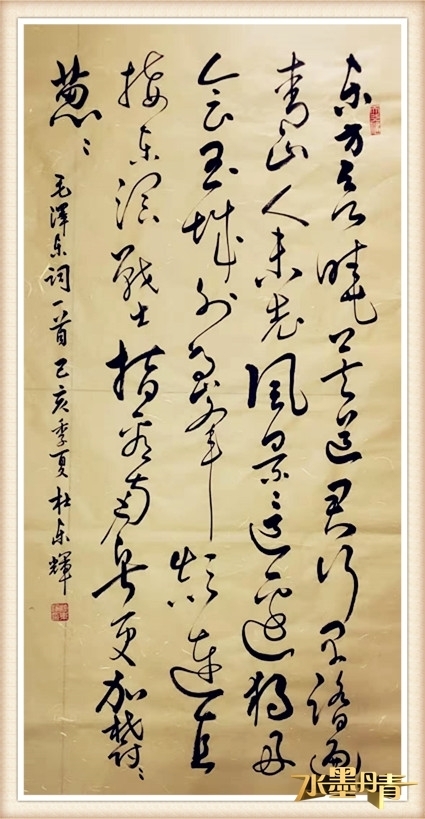 东方欲曉莫道君行早踏遍
青山人未老风景这边獨好
会昌城外高峰颠连直
接东溟戰士指看南粤更加鬱〻
葱〻
毛澤东词一首己亥季夏杜东輝
水墨丹青